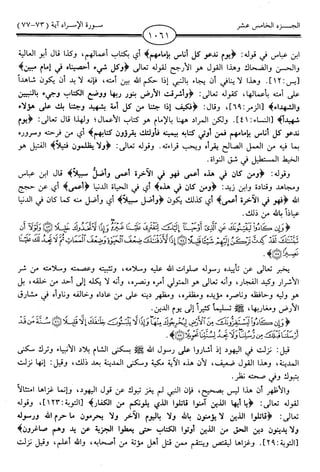 الجـزء الخامس عشر
١٠٦١
سورة الإسراء آية (٧٣-٧٧)
ابن عباس في قوله: ﴿يوم ندعو كل أناس بإمامهم﴾ أي بكتاب أعمالهم، وكذا قال أبو العالية
والحسن والضحاك وهذا القول هو الأرجح لقوله تعالى ﴿وكل شيء أحصيناه في إمام مبين﴾
[يس: ١٢]. وهذا لا ينافي أن يجاء بالنبي إذا حكم الله بين أمته، فإنه لا بد أن يكون شاهداً
على أمته بأعمالها، كقوله تعالى: ﴿وأشرقت الأرض بنور ربها ووضع الكتاب وجيء بالنبيين
والشهداء﴾ [الزمر: ٦٩]، وقال: ﴿فكيف إذا جئنا من كل أمة بشهيد وجئنا بك على هؤلاء
شهيداً﴾ [النساء: ٤١]. ولكن المراد ههنا بالإمام هو كتاب الأعمال؛ ولهذا قال تعالى: ﴿يوم
ندعو كل أناس بإمامهم فمن أوتي كتابه بيمينه فأولئك يقرؤون كتابهم﴾ أي من فرحته وسروره
بما فيه من العمل الصالح يقرأه ويحب قراءته. وقوله تعالى: ﴿ولا يظلمون فتيلاً﴾ الفتيل هو
الخيط المستطيل في شق النواة.
وقوله: ﴿ومن كان في هذه أعمى فهو في الآخرة أعمى وأضل سبيلاً﴾ قال ابن عباس
ومجاهد وقتادة وابن زيد: ﴿ومن كان في هذه﴾ أي في الحياة الدنيا ﴿أعمى﴾ أي عن حجج
الله ﴿فهو في الآخرة أعمى﴾ أي كذلك يكون ﴿وأضل سبيلاً﴾ أي وأضل منه كما كان في الدنيا
عياذاً بالله من ذلك.
﴿وَإِن كَادُوا لَيَفْتِنُونَكَ عَنِ الَّذِي أَوْحَيْنَا إِلَيْكَ لِتَفْتَرِيَ عَلَيْنَا غَيْرَهُ وَإِذًا لَّاتَّخَذُوكَ خَلِيلًا ﴿٧٣﴾ وَلَوْلَا أَن
ثَبَّتْنَاكَ لَقَدْ كِدتَّ تَرْكَنُ إِلَيْهِمْ شَيْئًا قَلِيلًا ﴿٧٤﴾ إِذًا لَّأَذَقْنَاكَ ضِعْفَ الْحَيَاةِ وَضِعْفَ الْمَمَاتِ ثُمَّ لَا تَجِدُ لَكَ عَلَيْنَا
نَصِيرًا ﴿٧٥﴾﴾.
يخبر تعالى عن تأييده رسوله صلوات الله عليه وسلامه، وتثبيته وعصمته وسلامته من شر
الأشرار وكيد الفجار، وأنه تعالى هو المتولي أمره ونصره، وأنه لا يكله إلى أحد من خلقه، بل
هو وليه وحافظه وناصره مؤيده ومظفره، ومظهر دينه على من عاداه وخالفه وناوأه في مشارق
الأرض ومغاربها، ﷺ تسليماً كثيراً إلى يوم الدين.
﴿وَإِن كَادُوا لَيَسْتَفِزُّونَكَ مِنَ الْأَرْضِ لِيُخْرِجُوكَ مِنْهَا وَإِذًا لَّا يَلْبَثُونَ خِلَافَكَ إِلَّا قَلِيلًا ﴿٧٦﴾ سُنَّةَ مَن قَدْ
أَرْسَلْنَا قَبْلَكَ مِن رُّسُلِنَا وَلَا تَجِدُ لِسُنَّتِنَا تَحْوِيلًا ﴿٧٧﴾﴾.
قيل: نزلت في اليهود إذ أشاروا على رسول الله ﷺ بسكنى الشام بلاد الأنبياء وترك سكنى
المدينة، وهذا القول ضعيف، لأن هذه الآية مكية وسكنى المدينة بعد ذلك، وقيل: إنها نزلت
بتبوك وفي صحته نظر.
والأظهر أن هذا ليس بصحيح، فإن النبي لم يغز تبوك عن قول اليهود، وإنما غزاها امتثالاً
لقوله تعالى: ﴿يا أيها الذين آمنوا قاتلوا الذي يلونكم من الكفار﴾ [التوبة: ١٢٣]، وقوله
تعالى: ﴿قاتلوا الذين لا يؤمنون بالله ولا باليوم الآخر ولا يحرمون ما حرم الله ورسوله
ولا يدينون دين الحق من الذين أوتوا الكتاب حتى يعطوا الجزية عن يد وهم صاغرون﴾
[التوبة: ٢٩]. وغزاها ليقتص وينتقم ممن قتل أهل مؤتة من أصحابه، والله أعلم، وقيل نزلت